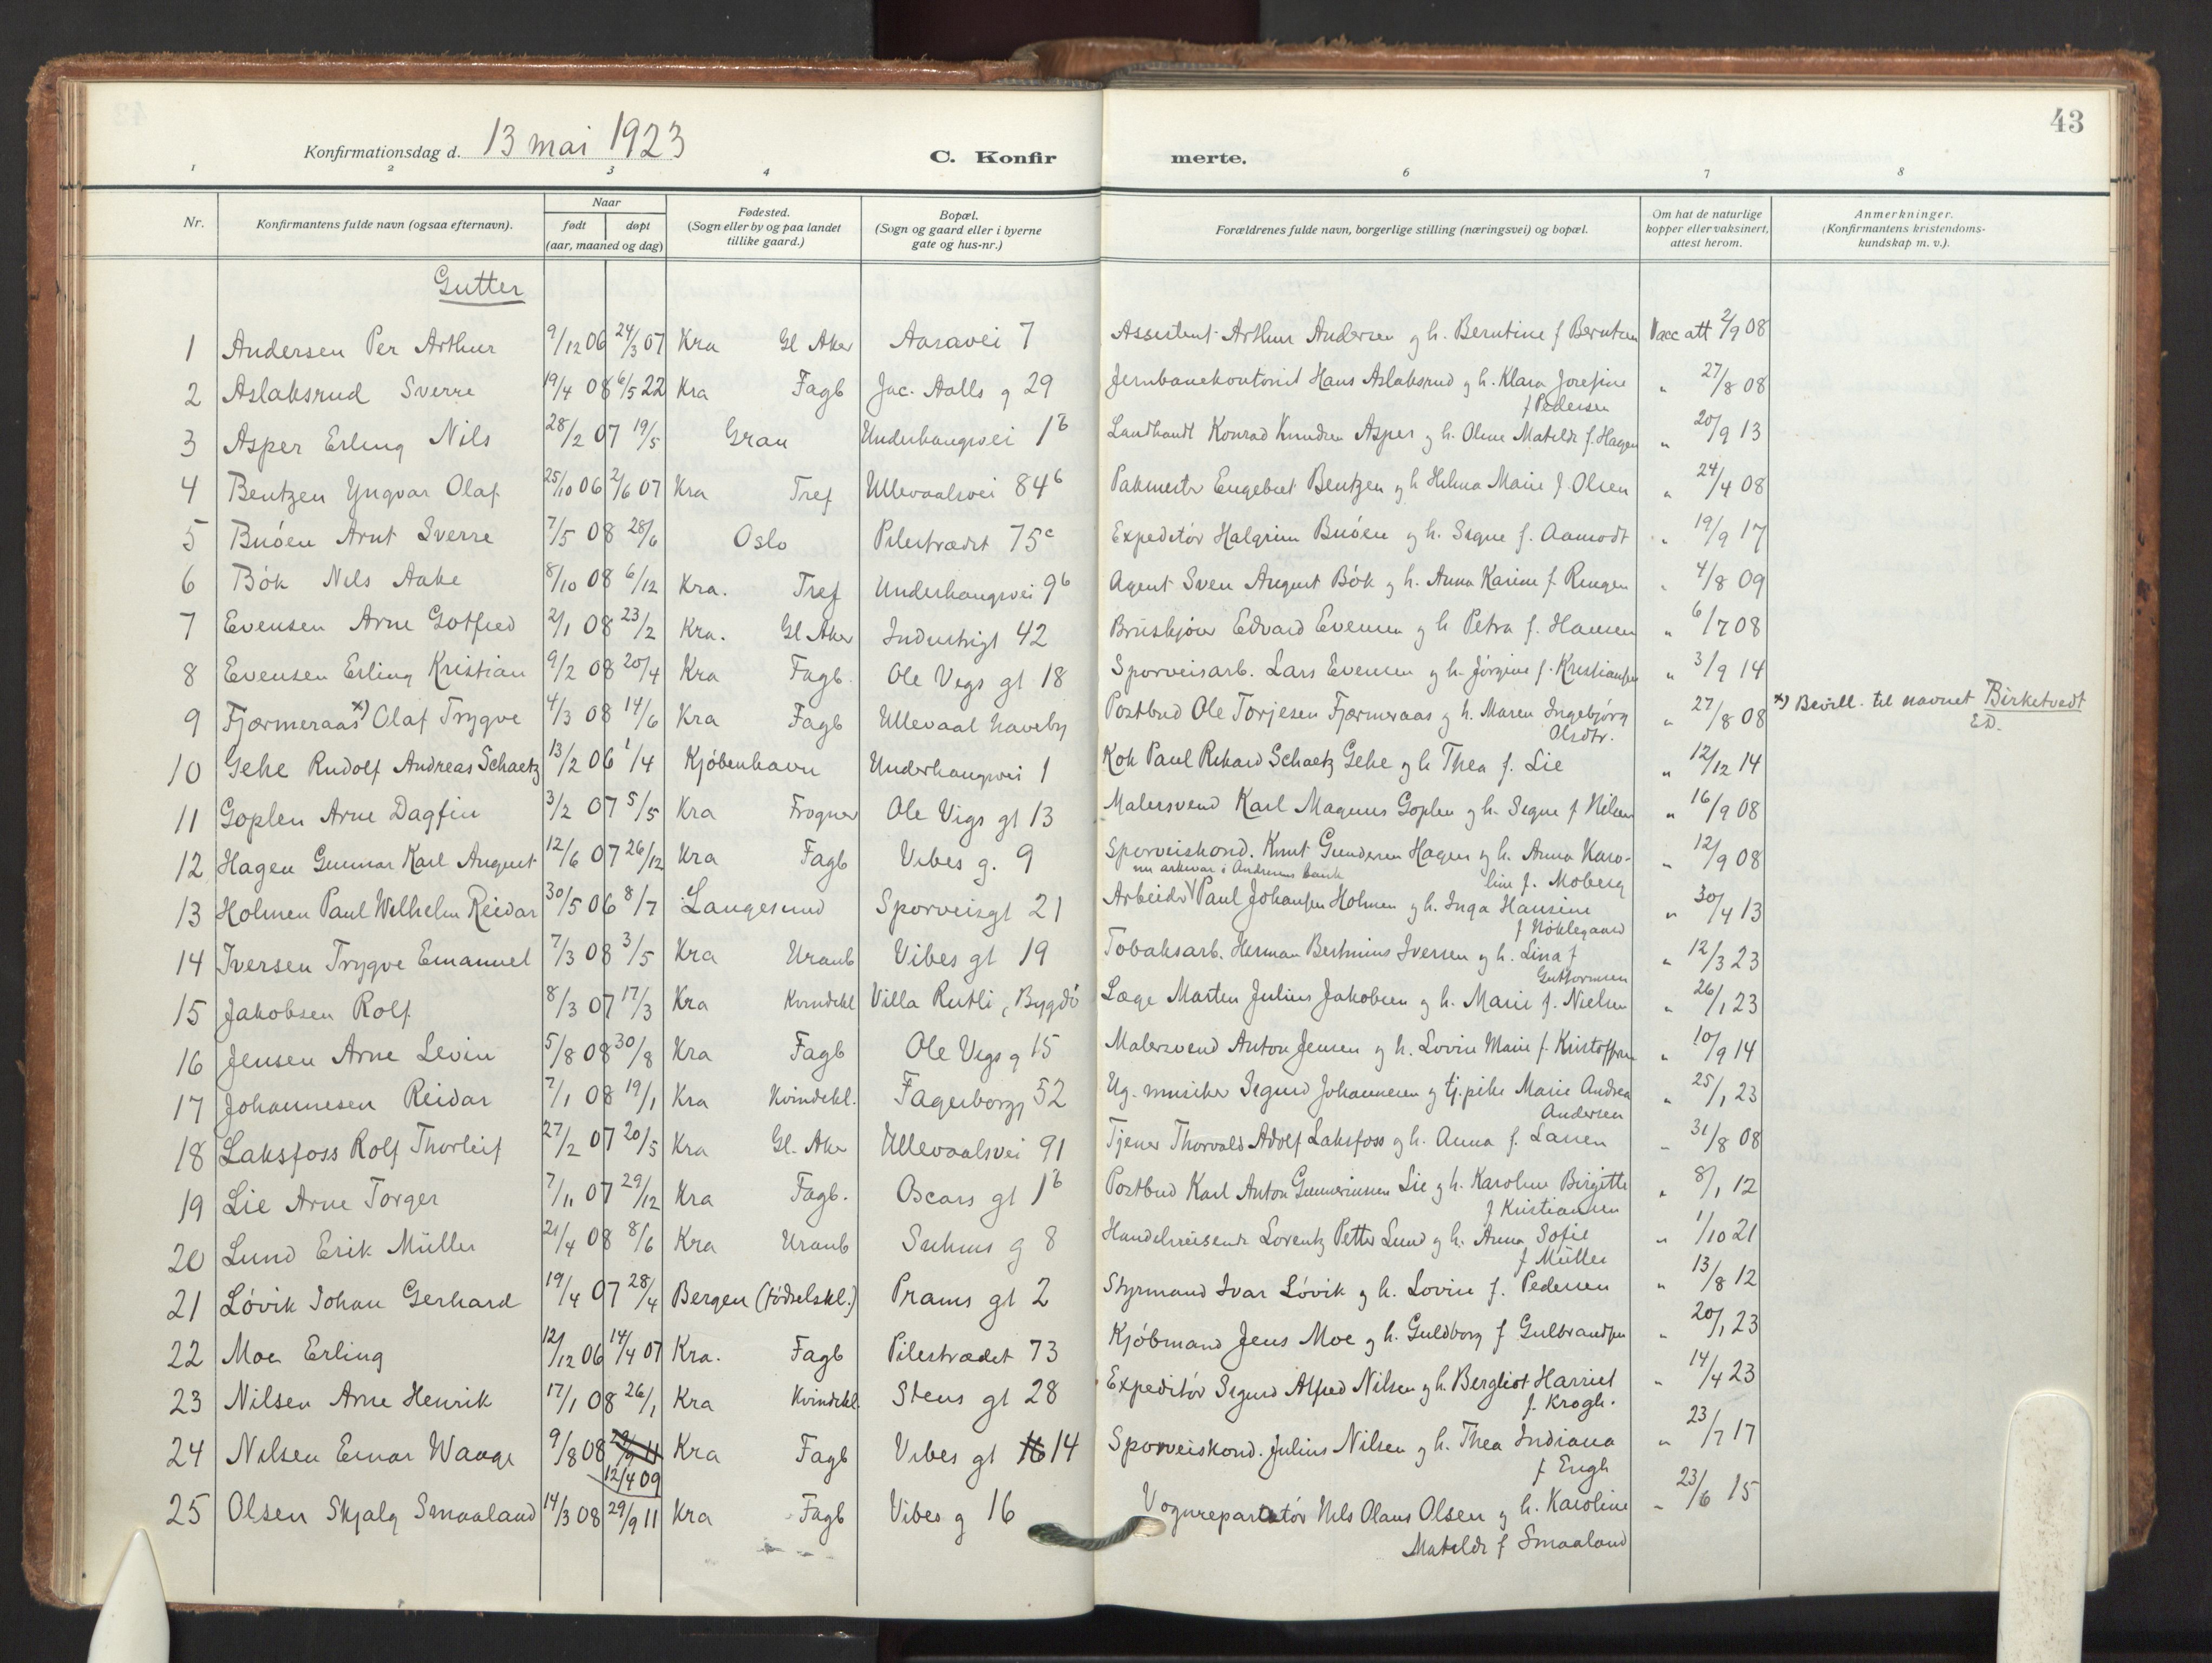 43
Konfirmationsdag d. 13 mai 1923 C. Konfir merte.
1 2 3 4 6 7 8
Nr. Konfirmantens fulde navn (ogsaa efternavn). Naar født døpt (aar, maaned og dag) Fødested. (Sogn eller by og paa landet tillike gaard.) Bopæl. (Sogn og gaard eller i byerne gate og hus-nr.) Forældrenes fulde navn, borgerlige stilling (næringsvei) og bopæl. Om hat de naturlige kopper eller vaksinert, attest herom. Anmerkninger. (Konfirmantens kristendoms-kundskap m. v.).
Gutter
1 Andersen Per Arthur 9/12 06 24/3 07 Kra Gl Aker Aasavei 7 Assistent Arthur Andersen g h. Berntine f Berntsen Vacc att 2/9 08
2 Aslaksrud Sverre 19/4 08 6/5 22 Kra Fagb Jac. Aalls g 29 Jernbanekontorist Hans Aslaksrud g h. Klara Josefine " 27/8 08
f Pedersen
3 Asper Erling Nils 28/2 07 19/5 Gran Underhaugsvei 1b Landhandl Konrad Knudsen Asper g h. Oline Matilde f. Hagen " 20/9 13
4 Bentzen Yngvar Olaf 25/10 06 2/6 07 Kra Tref Ullevaalsvei 84b Pakmester Engebret Bentzen g h Helma Marie f. Olsen " 24/4 08
5 Buöen Arnt Sverre 7/5 08 28/6 Oslo Pilestrædet 75c Expeditör Halgrim Buöen g h. Signe f. Aamodt " 19/9 17
6 Bök Nils Aake 8/10 08 6/12 Kra. Tref Underhaugsvei 9b Agent Sven August Bök g h. Anna Karine f. Ringen " 4/8 09
7 Evensen Arne Gotfred 2/1 08 23/2 Kra. Gl Aker Industrigt 42 Bruskjörer Edvard Evensen g h Petra f. Hansen " 6/7 08
8 Evensen Erling Kristian 9/2 08 20/4 Kra Fagb. Ole Vigs gt 18 Sporveisarb. Lars Evensen g h. Jörgine f. Kristiansen " 3/9 14
9 Fjærmeraas x) Olaf Trygve 4/3 08 14/6 Kra Fagb Ullevaal haveby Postbud Ole Torjesen Fjærmeraas g h. Maren Ingebjörg " 27/8 08 x) Bevill. til navnet Birketvedt
Olsdtr. ED.
10 Gehe Rudolf Andreas Schaetz 13/2 06 1/4 Kjöbenhavn Underhaugsvei 1 Kok Paul Rikard Schaetz Gehe g h Thea f. Lie " 12/12 14
11 Goplen Arne Dagfin 3/2 07 5/5 Kra Frogner Ole Vigs gt 13 Malersvend Karl Magnus Goplen g h. Signe f Nilsen " 16/9 08
12 Hagen Gunnar Karl August 12/6 07 26/12 Kra Fagb Vibes g. 9 Sporveiskond. Knut Gundersen Hagen g h. Anna Karo- " 12/9 08
nu arkivar i Andresens bank line f. Moberg
13 Holmen Paul Wilhelm Reidar 30/5 06 8/7 Langesund Sporveisgt 21 Arbeider Paul Johansen Holmen g h. Inga Hansine " 30/4 13
f Nöklegaard
14 Iversen Trygve Emanuel 7/3 08 3/5 Kra Uranb Vibes gt 19 Tobaksarb. Herman Bertinius Iversen g h. Lina f " 12/3 23
Guttormsen
15 Jakobsen Rolf 8/3 07 17/3 Kra Kvindekl Villa Rutli, Bygdö Læge Marten Julius Jakobsen g h. Marie f. Nielsen " 26/1 23
16 Jensen Arne Levin 5/8 08 30/8 Kra Fagb Ole Vigs g 15 Malersvend Anton Jensen g h. Lovise Marie f. Kristoffersen " 10/9 14
17 Johannesen Reidar 7/1 08 19/1 Kra Kvindekl. Fagerborgg 52 Ug. musiker Sigurd Johannesen g tj.pike Marie Andrea " 25/1 23
Andersen
18 Laksfoss Rolf Thorleif 27/2 07 20/5 Kra Gl. Aker Ullevaalsvei 91 Tjener Thorvald Adolf Laksfoss g h. Anna f. Larsen " 31/8 08
19 Lie Arne Torger 7/11 07 29/12 Kra Fagb. Oscars gt 1b Postbud Karl Anton Gunneriussen Lie g h. Karoline Birgitte " 8/1 12
f Kristiansen
20 Lund Erik Müller 21/4 08 8/6 Kra Uranb Suhms g 8 Handelsreisende Lorentz Petter Lund g h. Anna Sofie " 1/10 21
f Müller
21 Lövik Johan Gerhard 19/4 07 28/4 Bergen (födselskl.) Prams gt 2 Styrmand Ivar Lövik g h. Lovise f. Pedersen " 13/8 12
22 Moe Erling 12/12 06 14/4 07 Kra. Fagb Pilestrædet 73 Kjöbmand Jens Moe g h. Guldborg f Gulbrandsen " 20/1 23
23 Nilsen Arne Henrik 17/1 08 26/1 Kra Kvindekl Stens gt 28 Expeditör Sigurd Alfred Nilsen g h. Bergliot Harriet " 14/4 23
f. Krogh.
24 Nilsen Einar Waage 9/8 08 29/9 11 Kra Fagb Vibes gt 16 14 Sporveiskond. Julius Nilsen g h. Thea Indiana " 23/7 17
12/4 09 f Engh
25 Olsen Skjalg Smaaland 14/3 08 29/9 11 Kra Fagb Vibes g 16 Vognreparatör Nils Olaus Olsen g h. Karoline " 23/6 15
Matilde f Smaaland